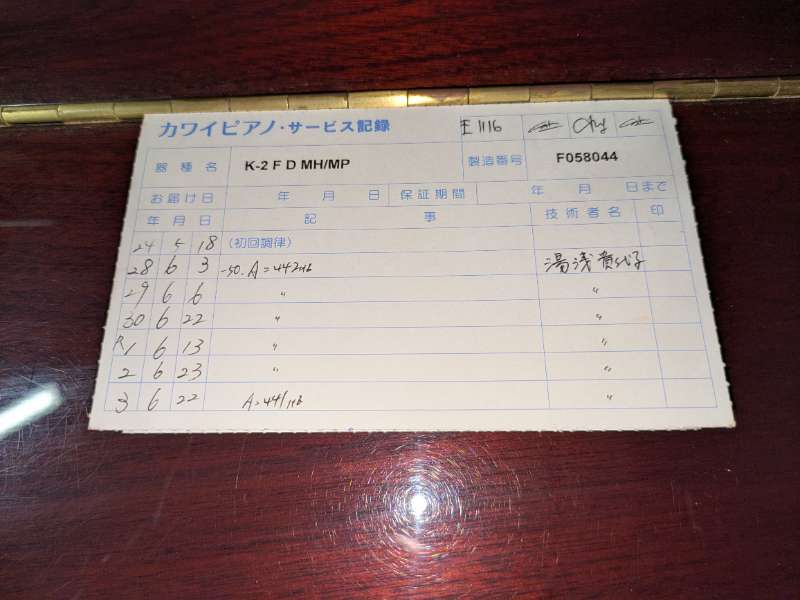 カワイピアノ・サービス記録
器種名 K-2 F D MH/MP 製造番号 F058044
お届け日 年 月 日 保証期間 年 月 日まで
年 月 日 記 事 技術者名 印
24 5 18 (初回調律)
28 6 3 -50. A=442Hz 湯浅貴代子
29 6 6 〃 〃
30 6 22 〃 〃
R1 6 13 〃 〃
2 6 23 〃 〃
3 6 22 A=441Hz 〃